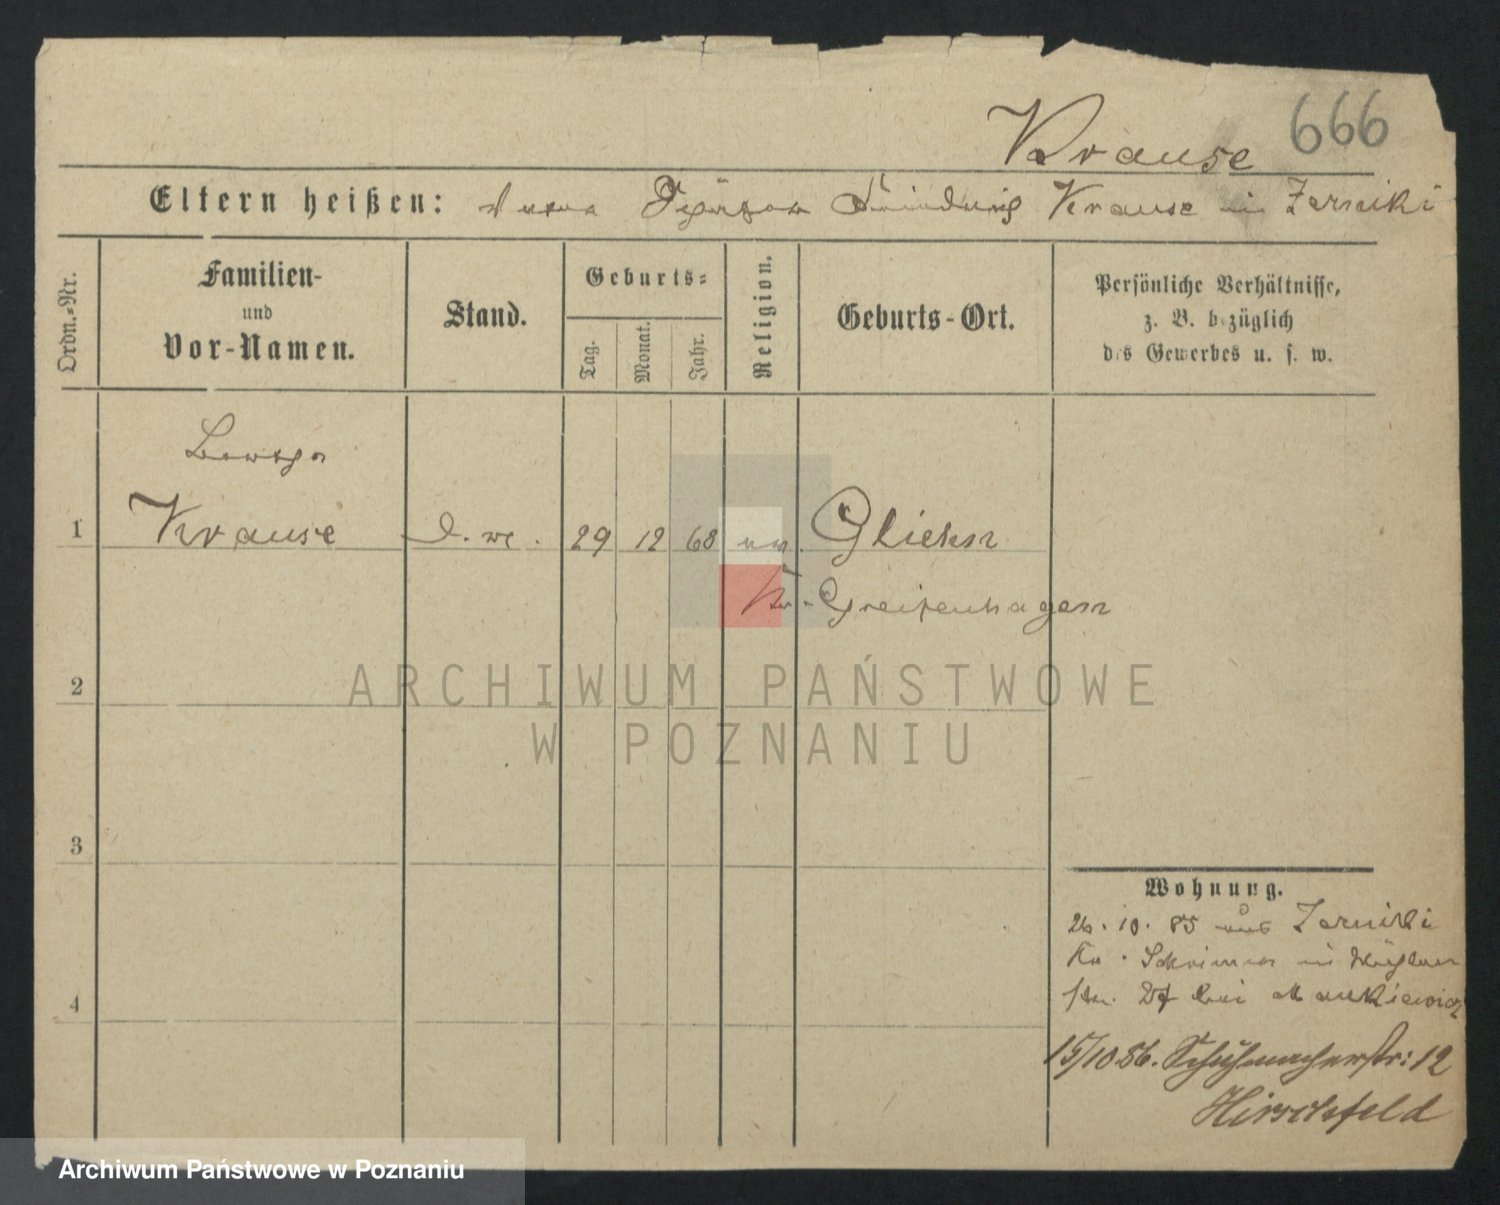 Krause 666
Eltern heißen: Krause in Zerniki
Ordn.-Nr.
Familien-
und
Vor-Namen.
Stand.
Geburts-
Tag.
Monat.
Jahr.
Religion.
Geburts-Ort.
Persönliche Verhältnisse,
z. B. bezüglich
des Gewerbes u. s. w.
1 Krause 29 12 68
Kr. Greifenhagen
2
ARCHIWUM PAŃSTWOWE
W POZNANIU
3
4
Wohnung.
26. 10. 85 aus Zerniki
Kr. Schrimm in
bei Mankiewicz
15/10 86. Schuhmacherstr: 12
Hirschfeld
Archiwum Państwowe w Poznaniu